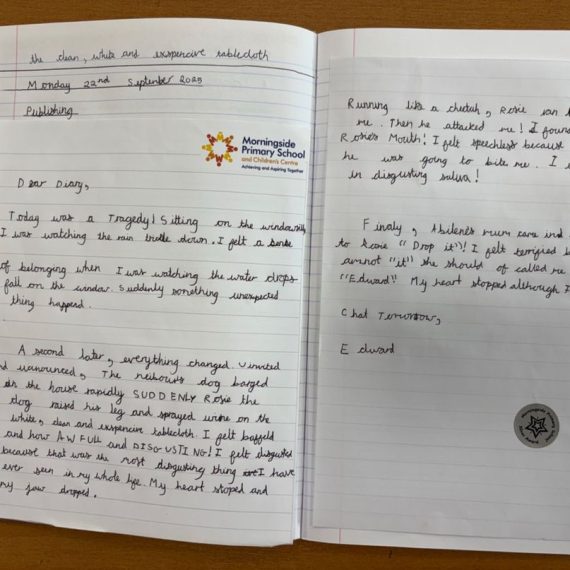 the clean, white and exspencive tablecloth
Monday 22nd September 2025
Publishing
Morningside
Primary School
and Children's Centre
Achieving and Aspiring Together
Dear Diary,
Today was a Tragedy! Sitting on the windowsill
I was watching the rain trickle down. I felt a sense
of belonging when I was watching the water drops
fall on the window. Suddenly something unexpected
thing happend.
A second later, everything changed. Uninvited
unannounced, The neibours dog barged
in the house rapidly SUDDENLY Rosie the
dog raised his leg and sprayed urine on the
white, clean and exspencive tablecloth. I felt baffeld
and how AWFULL and DISGUSTING! I felt disgusted
because that was the most disgusting thing I have
ever seen in my whole life. My heart stoped and
my jaw dropped.
Running like a cheetah, Rosie ran
me. Then he attacked me! I found
Rosie's Mouth! I felt speechless because
he was going to bite me. I
in disgusting saliva!
Finaly, Abilene's mum came
to Rosie "Drop it"! I felt terrified
amnot "it" she should of called me
"Edward" My heart stopped although I
Chat Tomorrow,
Edward